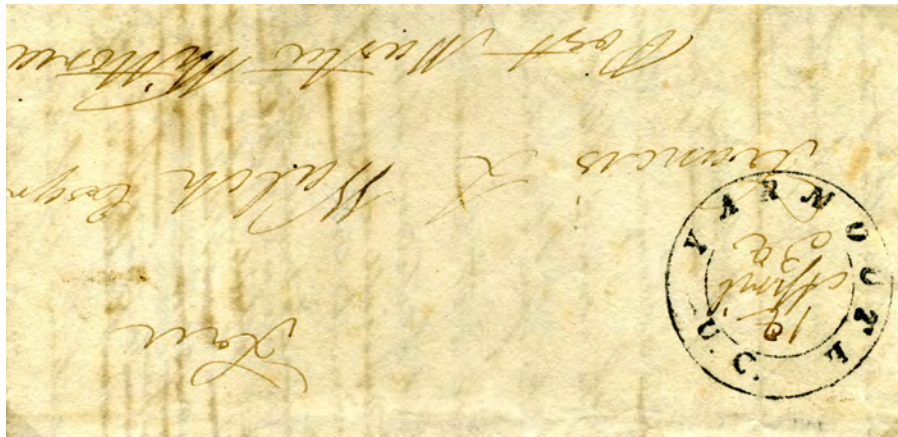 Free
Francis L Walsh Esqr
Post Master Vittoria
YARMOUTH U.C.
April